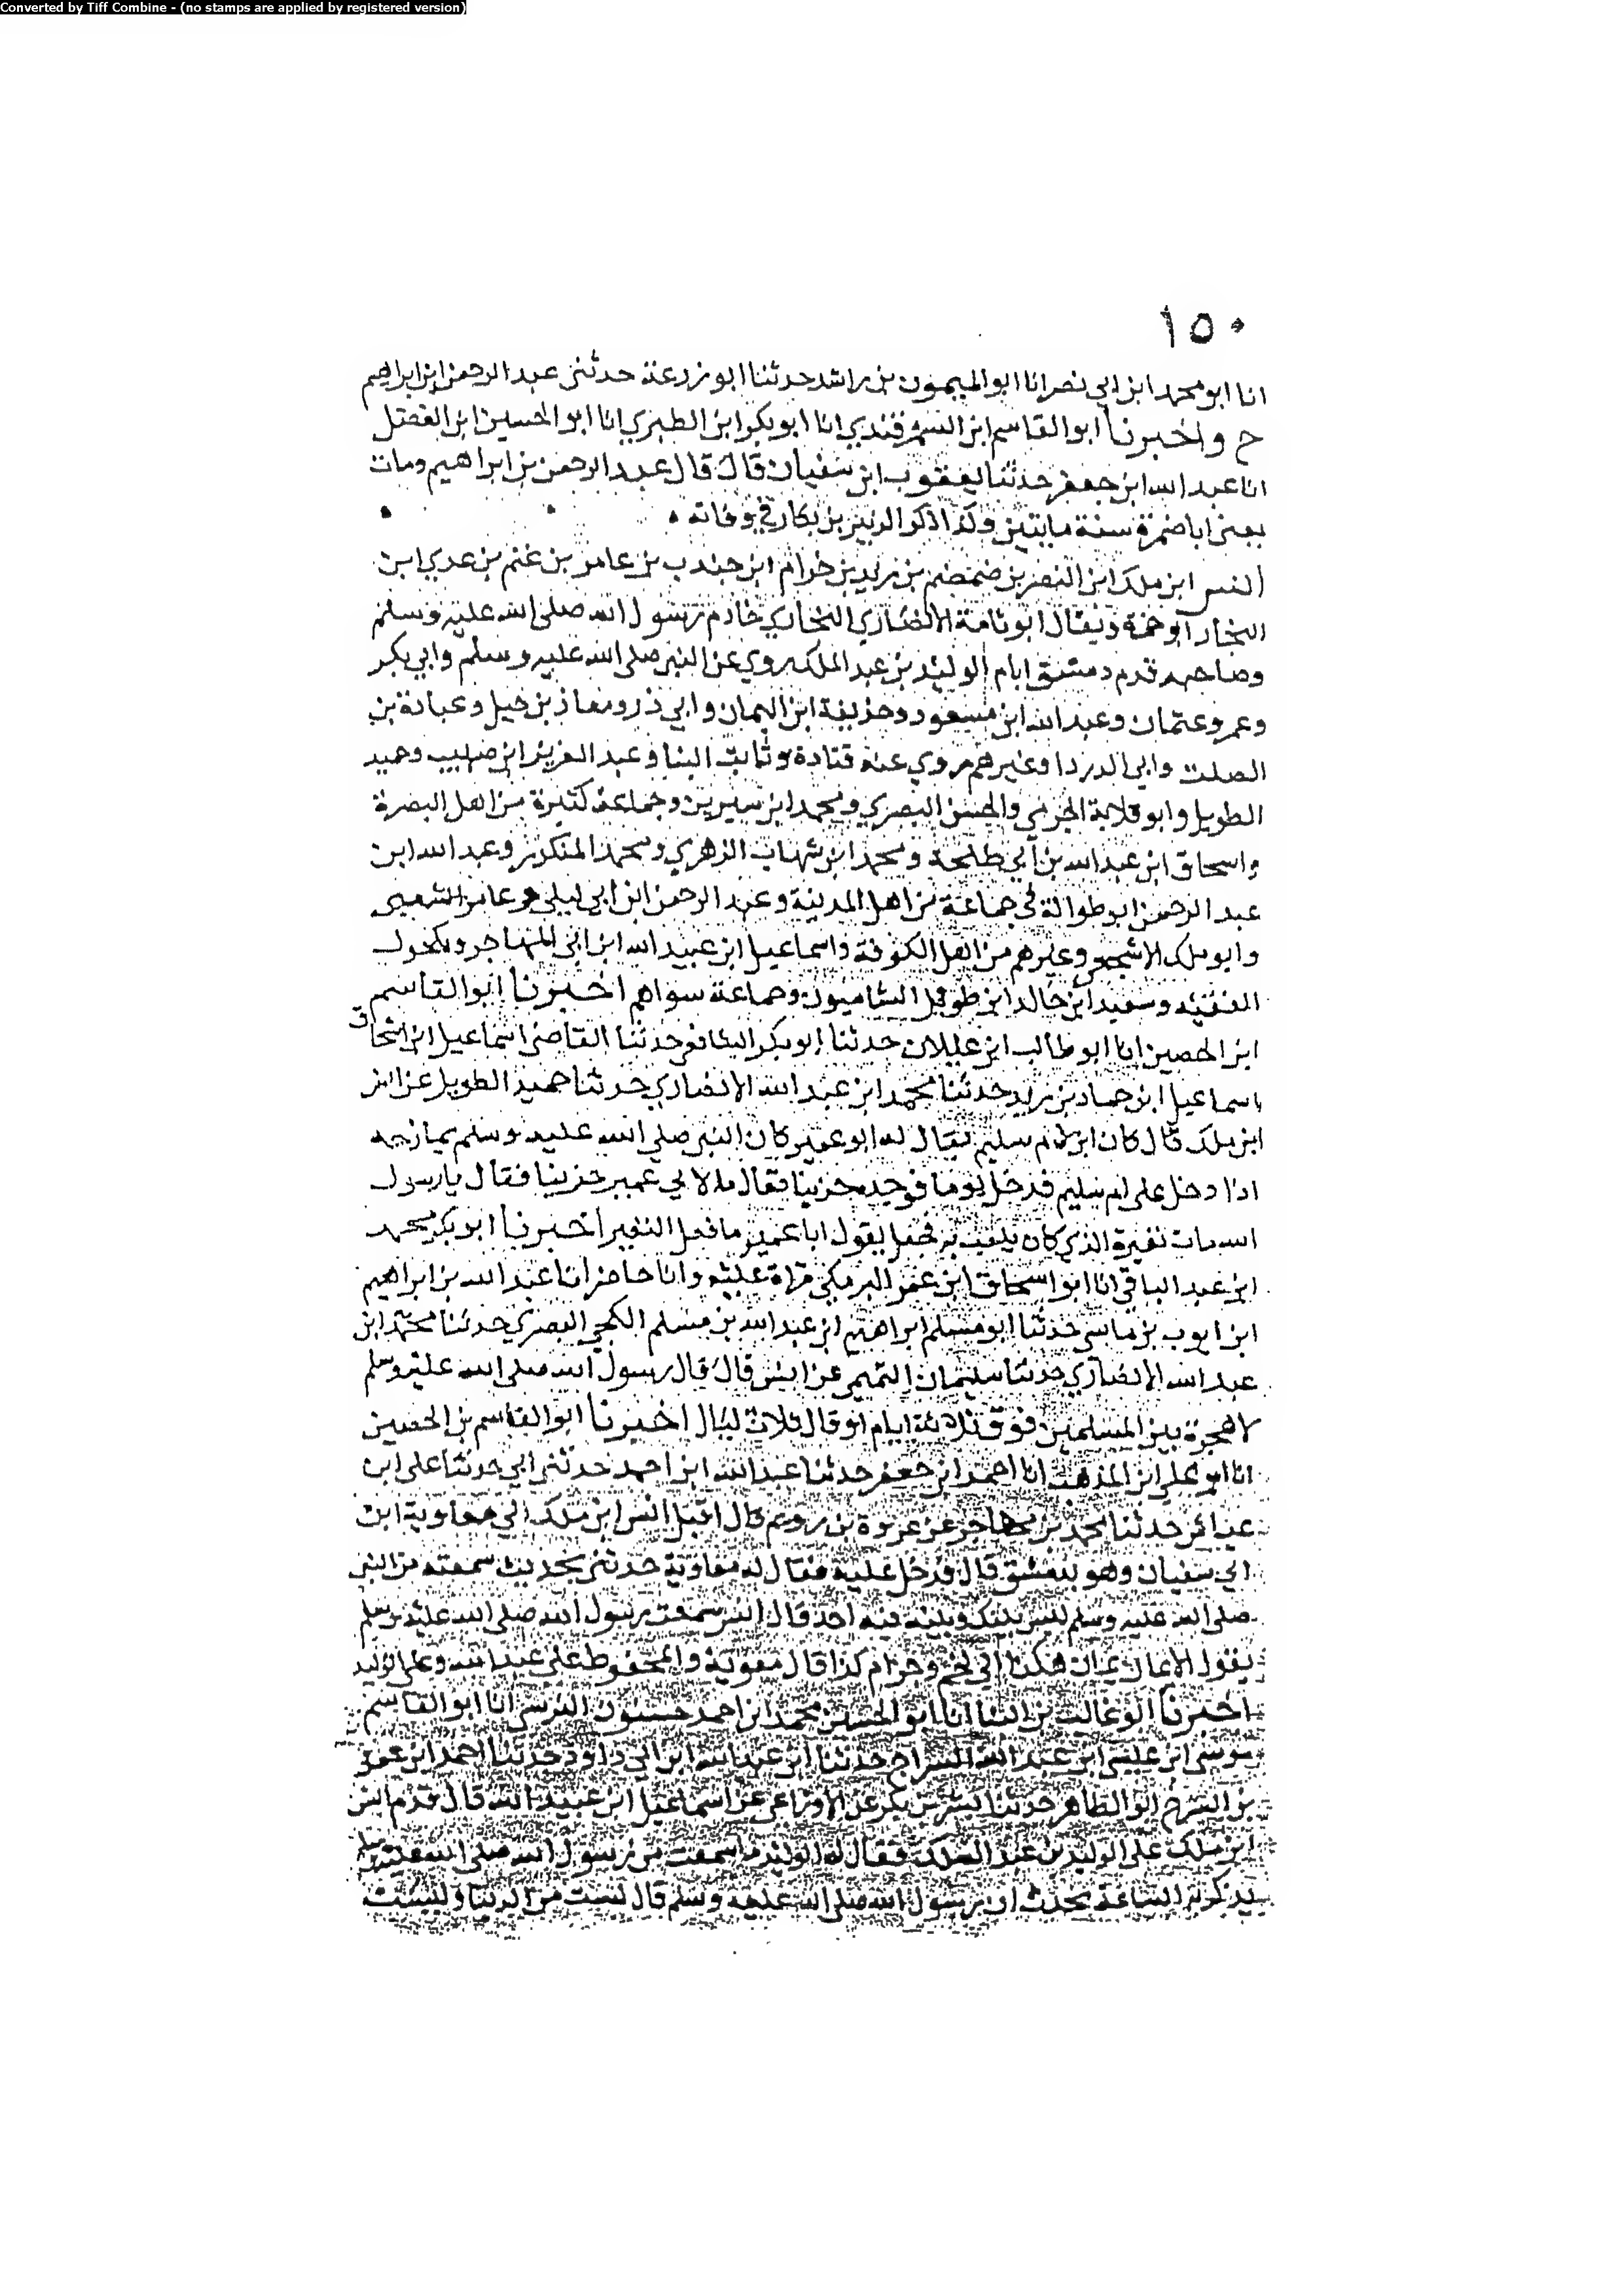 Converted by Tiff Combine - (no stamps are applied by registered version)
١٥٠
انا ابو محمد ابن ابي نصر انا ابو الميمون بن راشد حدثنا ابو زرعة حدثني عبد الرحمن ابن ابراهيم
ح واخبرنا ابو القاسم ابن السمرقندي انا ابو بكر ابن الطبري انا ابو الحسين ابن الفضل
انا عبد الله ابن جعفر حدثنا يعقوب ابن سفيان قال قال عبد الرحمن بن ابراهيم ومات
يعني ابا ضمرة سنة مايتين وكذا ذكر الزبير بن بكار في وفاته
انس ابن ملك ابن النضر بن ضمضم بن زيد بن حرام ابن جندب بن عامر بن غنم بن عدي ابن
النجار ابو حمزة ويقال ابو ثامة الانصاري النجاري خادم رسول الله صلى الله عليه وسلم
وصاحبه قدم دمشق ايام الوليد بن عبد الملك روي عن النبي صلى الله عليه وسلم وابي بكر
وعمر وعثمان وعبد الله ابن مسعود وحذيفة ابن اليمان وابي ذر ومعاذ بن جبل وعبادة بن
الصلت وابي الدردا وغيرهم روي عنه قتادة وثابت البنا وعبد العزيز ابن صهيب وحميد
الطويل وابو قلابة الجرمي والحسن البصري ومحمد ابن سيرين وجماعة كثيرة من اهل البصرة
واسحاق ابن عبد الله بن ابي طلحة ومحمد ابن شهاب الزهري ومحمد المنكدر وعبد الله ابن
عبد الرحمن ابو طوالة في جماعة من اهل المدينة وعبد الرحمن ابن ابي ليلى وعامر الشعبي
وابو ملك الاشجعي وغيرهم من اهل الكوفة واسماعيل ابن عبيد الله ابن ابي المهاجر ومكحول
الفقيه وسعيد ابن خالد ابن طويل الشاميون وجماعة سواهم اخبرنا ابو القاسم
ابن الحصين انا ابو طالب ابن غيلان حدثنا ابو بكر الشافعي حدثنا القاضي اسماعيل ابن اسحاق
اسماعيل ابن حماد بن زيد حدثنا محمد ابن عبد الله الانصاري حدثنا حميد الطويل عن انس
ابن ملك قال كان ابن لام سليم يقال له ابو عمير كان النبي صلى الله عليه وسلم يمازحه
اذا دخل على ام سليم فدخل يوما فوجده حزينا فقال ما لابي عمير حزينا فقال يا رسول
الله مات نغيره الذي كان يلعب به فجعل يقول ابا عمير ما فعل النغير اخبرنا ابو بكر محمد
ابن عبد الباقي انا ابو اسحاق ابن عمر البرمكي قراة عليه وانا حاضر انا عبد الله بن ابراهيم
ابن ايوب بن ماسي حدثنا ابو مسلم ابراهيم ابن عبد الله بن مسلم الكجي البصري حدثنا محمد ابن
عبد الله الانصاري حدثنا سليمان التيمي عن انس قال قال رسول الله صلى الله عليه وسلم
لا هجرة بين المسلمين فوق ثلاثة ايام او قال ثلاث ليال اخبرنا ابو القاسم بن الحصين
انا ابو علي ابن المذهب انا احمد ابن جعفر حدثنا عبد الله ابن احمد حدثني ابي حدثنا علي ابن
عياش حدثنا محمد بن مهاجر عن عروة بن رويم قال اقبل انس ابن ملك الي معاوية ابن
ابي سفيان وهو بدمشق قال فدخل عليه فقال له معاوية حدثني بحديث سمعته من النبي
صلى الله عليه وسلم ليس بينك وبينه فيه احد قال انس سمعت رسول الله صلى الله عليه وسلم
يقول الايمان يمان هكذا الي لخم وجذام كذا قال معوية والمحفوظ على عبد الله وعلى الوليد
اخبرنا ابو غالب بن البنا انا ابو الحسين محمد ابن احمد حسنون النرسي انا ابو القاسم
موسى ابن عيسى ابن عبد الله السراج حدثنا ابن عبد الله ابن ابي داود حدثنا احمد ابن عمرو
بن السرح ابو الطاهر حدثنا بشر بن بكر عن الاوزاعي عن اسماعيل ابن عبيد الله قال قدم انس
ابن ملك على الوليد بن عبد الملك فقال له الوليد ما سمعت من رسول الله صلى الله عليه وسلم
يذكر به الساعة يحدث ان رسول الله صلى الله عليه وسلم قال لست من الدنيا وليست